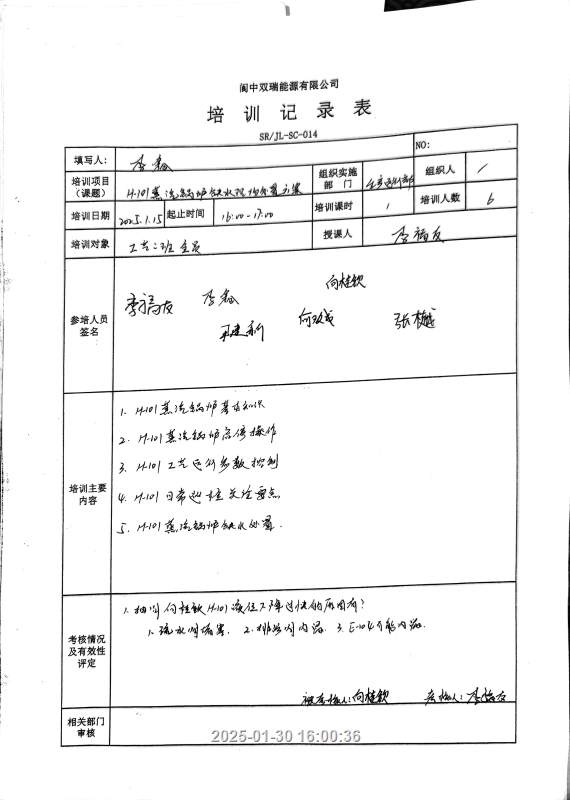 阆中双瑞能源有限公司
培训记录表
SR/JL-SC-014
填写人: 李鑫 NO:
培训项目（课题） H-101蒸汽锅炉缺水现场处置方案 组织实施部门 生产运行部 组织人 /
培训日期 2025.1.15 起止时间 16:00-17:00 培训课时 1 培训人数 6
培训对象 工艺二班全员 授课人 李福友
参培人员签名 李福友 李鑫 向桂钦
何政成 张樾
培训主要内容
1. H-101蒸汽锅炉基本知识
2. H-101蒸汽锅炉启停操作
3. H-101工艺运行参数控制
4. H-101日常巡检关注要点
5. H-101蒸汽锅炉缺水处置.
考核情况及有效性评定
1. 抽问向桂钦H-101液位下降过快的原因有?
1. 疏水阀堵塞. 2. 排污阀内漏. 3. E-104可能内漏.
被考核人: 向桂钦 考核人: 李福友
相关部门审核
2025-01-30 16:00:36